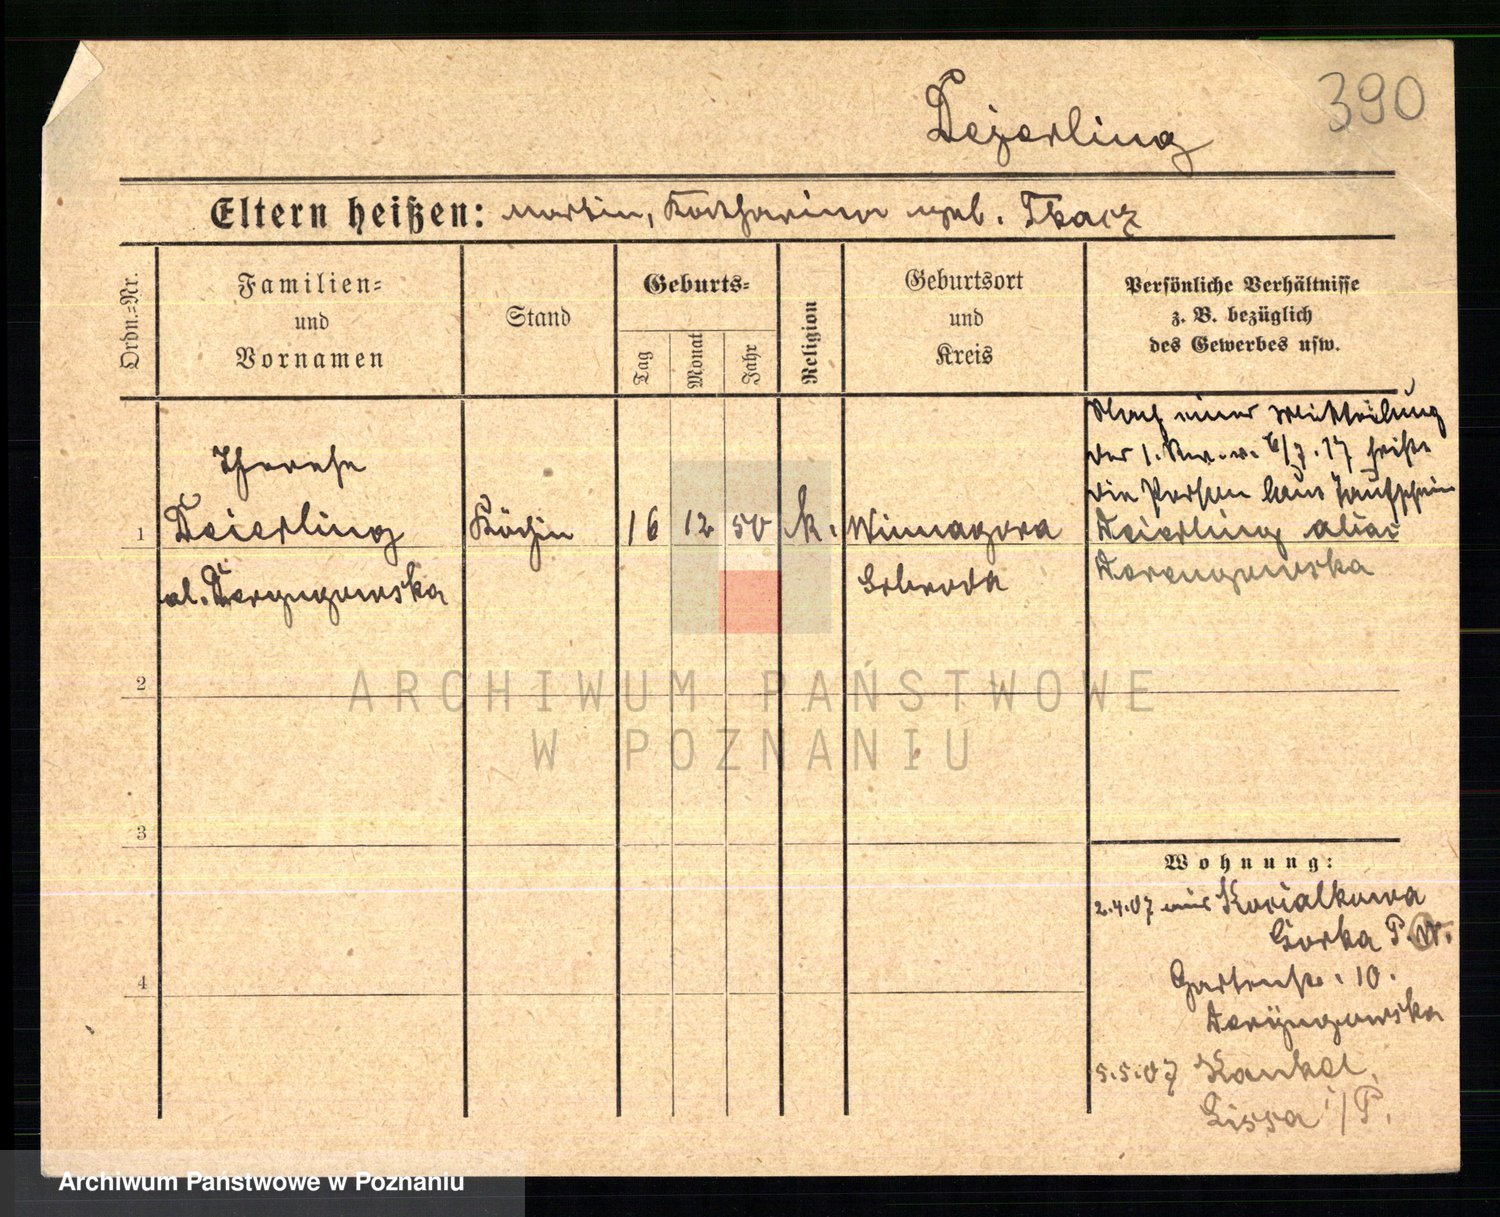 390
Dejerling
Eltern heißen: Martin, Katharina geb. Tkacz
Ordn.=Nr.
Familien=
und
Vornamen
Stand
Geburts=
Tag
Monat
Jahr
Religion
Geburtsort
und
Kreis
Persönliche Verhältnisse
z. B. bezüglich
des Gewerbes usw.
Nach einer Mitteilung
der 1. v. 6/7.17 heißt
die Person laut Taufschein
Deierling alias
Derengowska
1
Therese
Deierling
al. Deryngowska
Köchin
16 12 50 k.
Winnagora
Schroda
2
3
4
Wohnung:
2.4.07 aus Korialkowa
Gorka P. W.
Gartenstr. 10.
Deryngowska
5.5.07 Kankel,
Lissa i/P.
ARCHIWUM PAŃSTWOWE
W POZNANIU
Archiwum Państwowe w Poznaniu